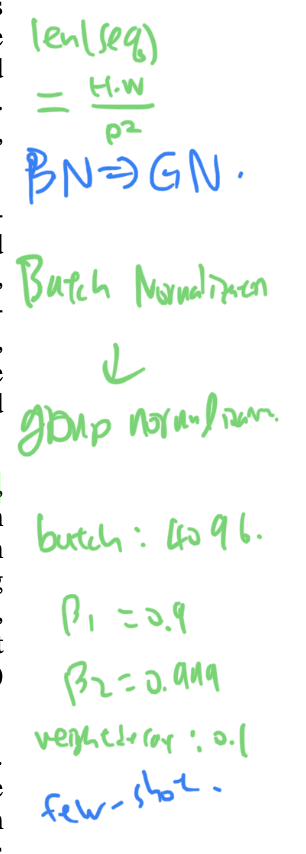 len(seq)
= H·W / P²
BN ⇒ GN.
Batch Normalization
↓
group normalization.
batch: 4096.
β₁ = 0.9
β₂ = 0.999
weight decay: 0.1
few-shot.